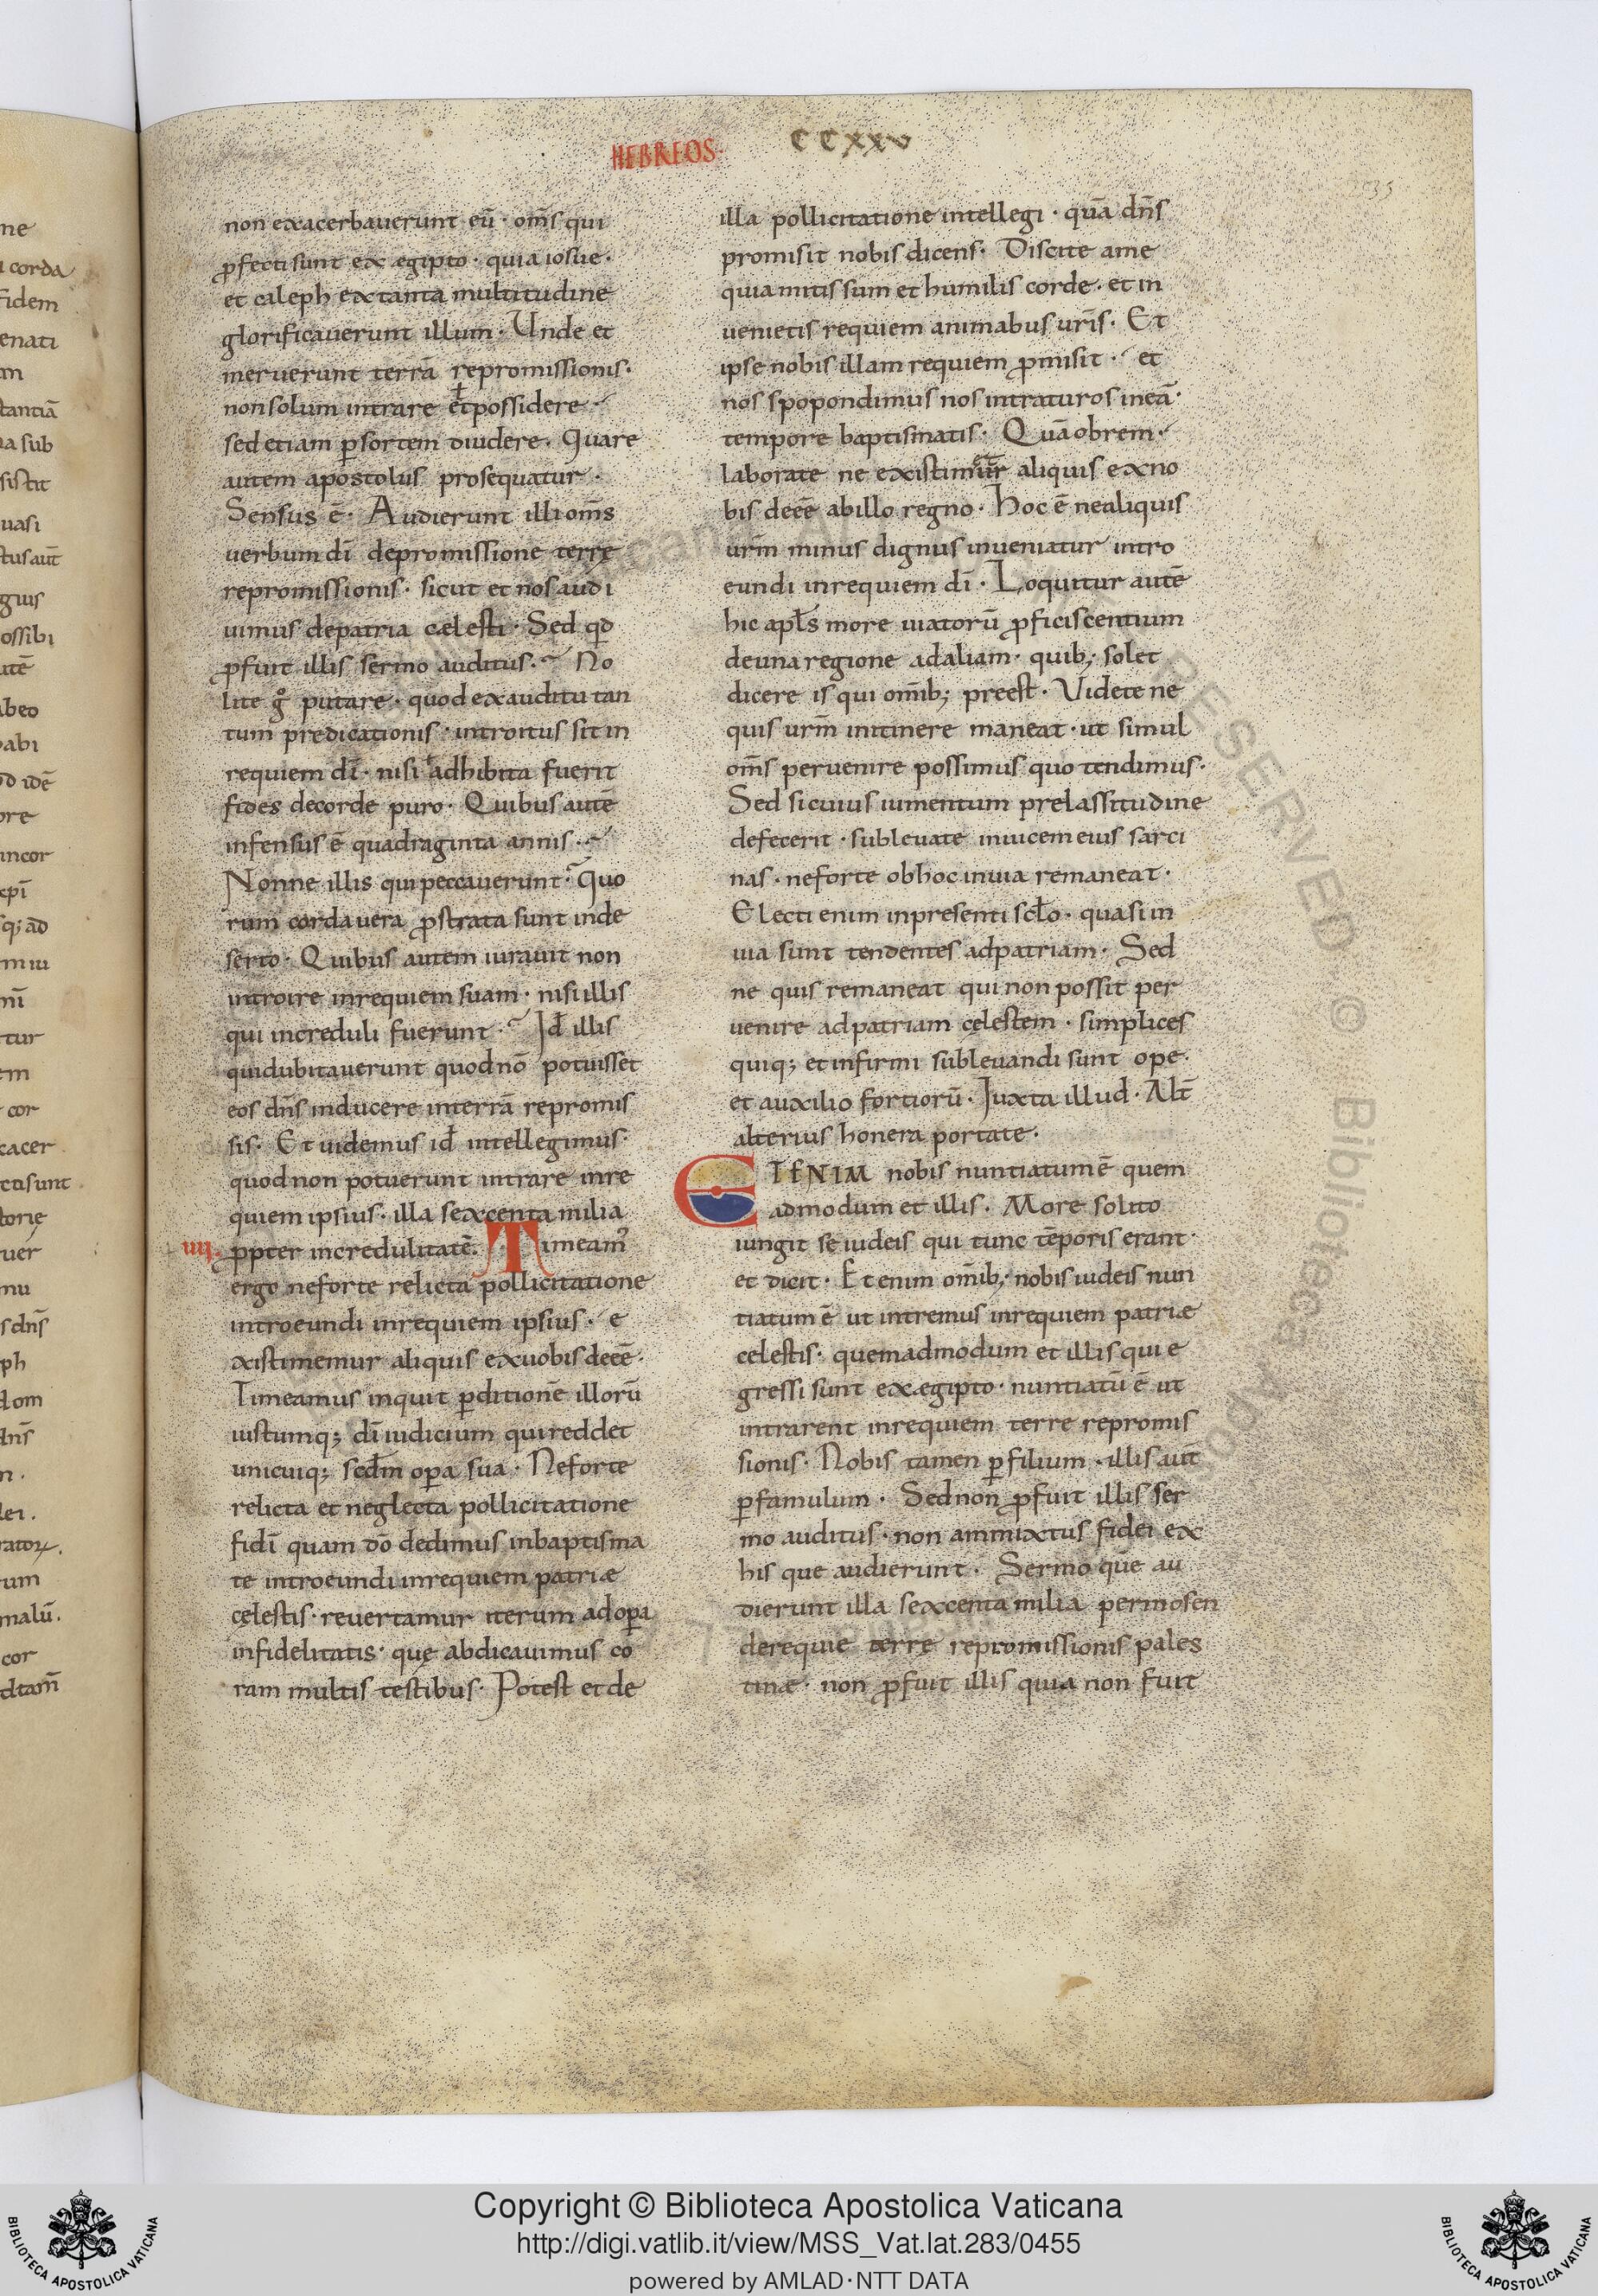 HEBREOS·
CCXXV
non exacerbauerunt eū· om̄s qui
ꝓfecti sunt ex ægipto· quia iosue·
et caleph ex tanta multitudine
glorificauerunt illum· Unde et
meruerunt terrā repromissionis·
non solum intrare et possidere
sed etiam ꝑ sortem diuidere· Quare
autem apostolus prosequatur·
Sensus ē· Audierunt illi om̄s
uerbum dī de promissione terrę
repromissionis· sicut et nos audi
uimus de patria cælesti· Sed qd
ꝓfuit illis sermo auditus· No
lite gͦ putare· quod ex auditu tan
tum predicationis· introitus sit in
requiem dī· nisi adhibita fuerit
fides de corde puro· Quibus autē
infensus ē quadraginta annis·
Nonne illis qui peccauerunt· Quo
rum cordauera ꝓstrata sunt in de
serto· Quibus autem iurauit non
introire in requiem suam· nisi illis
qui increduli fuerunt· Id ē illis
qui dubitauerunt quod nō potuisset
eos dn̄s inducere in terrā repromis
sis· Et uidemus id ē intellegimus·
quod non potuerunt intrare in re
quiem ipsius· illa sexcenta milia
IIII· ꝓpter incredulitatē· Timeam᾽
ergo ne forte relicta pollicitatione
introeundi in requiem ipsius· e
xistimemur aliquis ex uobis deeē·
Timeamus inquit ꝑditionē illorū
iustumq; dī iudicium qui reddet
unicuiq; scdm oꝑa sua· Ne forte
relicta et neglecta pollicitatione
fidī quam dō dedimus in baptisma
te introeundi in requiem patriæ
cęlestis· reuertamur iterum ad oꝑa
infidelitatis· quę abdicauimus co
ram multis testibus· Potest et de
illa pollicitatione intellegi· quā dn̄s
promisit nobis dicens· Discite a me
quia mitis sum et humilis corde· et in
uenietis requiem animabus urīs· Et
ipse nobis illam requiem ꝓmisit· et
nos spopondimus nos intraturos in eā·
tempore baptismatis· Quāobrem·
laborate ne existimetur aliquis ex no
bis deeē ab illo regno· Hoc ē ne aliquis
urm̄ minus dignus inueniatur intro
eundi in requiem dī· Loquitur autē
hic apls more uiatorū ꝓficiscentium
de una regione ad aliam· quib; solet
dicere is qui omīb; preest· Videte ne
quis urm̄ in itinere maneat· ut simul
om̄s peruenire possimus quo tendimus·
Sed si cuius iumentum pre lassitudine
defecerit· subleuate inuicem eius sarci
nas· ne forte ob hoc in uia remaneat·
Electi enim in presenti sclo· quasi in
uia sunt tendentes ad patriam· Sed
ne quis remaneat qui non possit per
uenire ad patriam cęlestem· simplices
quiq; et infirmi subleuandi sunt ope·
et auxilio fortiorū· Iuxta illud· Alt̄
alterius honera portate·
ETENIM nobis nuntiatum ē quem
admodum et illis· More solito
iungit se iudeis qui tunc tēporis erant·
et dicit· Etenim omīb; nobis iudeis nun
tiatum ē ut intremus in requiem patriæ
celestis· quemadmodum et illis qui e
gressi sunt ex ægipto· nuntiatū ē ut
intrarent in requiem terre repromis
sionis· Nobis tamen ꝑ filium· illis aut̄
ꝑ famulum· Sed non ꝓfuit illis ser
mo auditus· non ammixtus fidei ex
his que audierunt· Sermo quē au
dierunt illa sexcenta milia per mosen
de requie terrę repromissionis pales
tinæ· non ꝓfuit illis quia non fuit
Copyright © Biblioteca Apostolica Vaticana
http://digi.vatlib.it/view/MSS_Vat.lat.283/0455
powered by AMLAD·NTT DATA
BIBLIOTECA APOSTOLICA VATICANA
BIBLIOTECA APOSTOLICA VATICANA